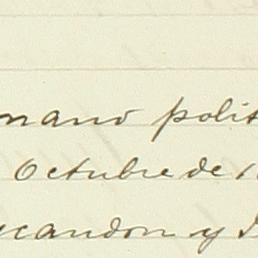 mano polit
Octubre de 1
scandon y I